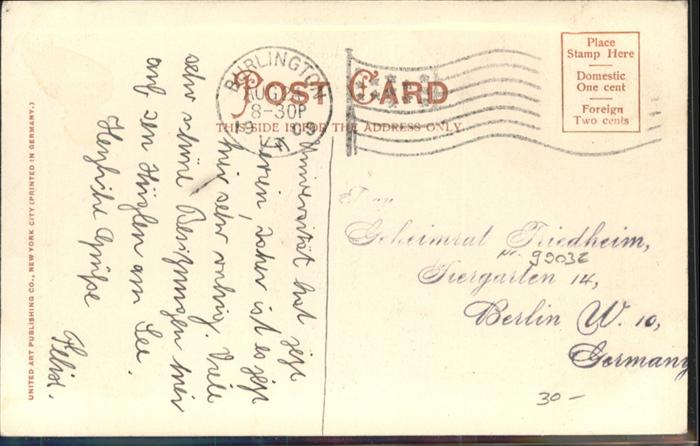 POST CARD
THIS SIDE IS FOR THE ADDRESS ONLY
Place
Stamp Here
Domestic
One cent
Foreign
Two cents
BURLINGTON
AUG
8-30P
VT.
Universität hat jetzt
Ferien, daher ist es jetzt
hier sehr ruhig. Viele
sehr schöne Besitzungen hier
auf den Hügeln am See.
Herzliche Grüße
Felix.
Frau
Geheimrat Friedheim,
Nr. 99032
Tiergarten 14,
Berlin W. 10,
Germany
30-
UNITED ART PUBLISHING CO., NEW YORK CITY (PRINTED IN GERMANY.)